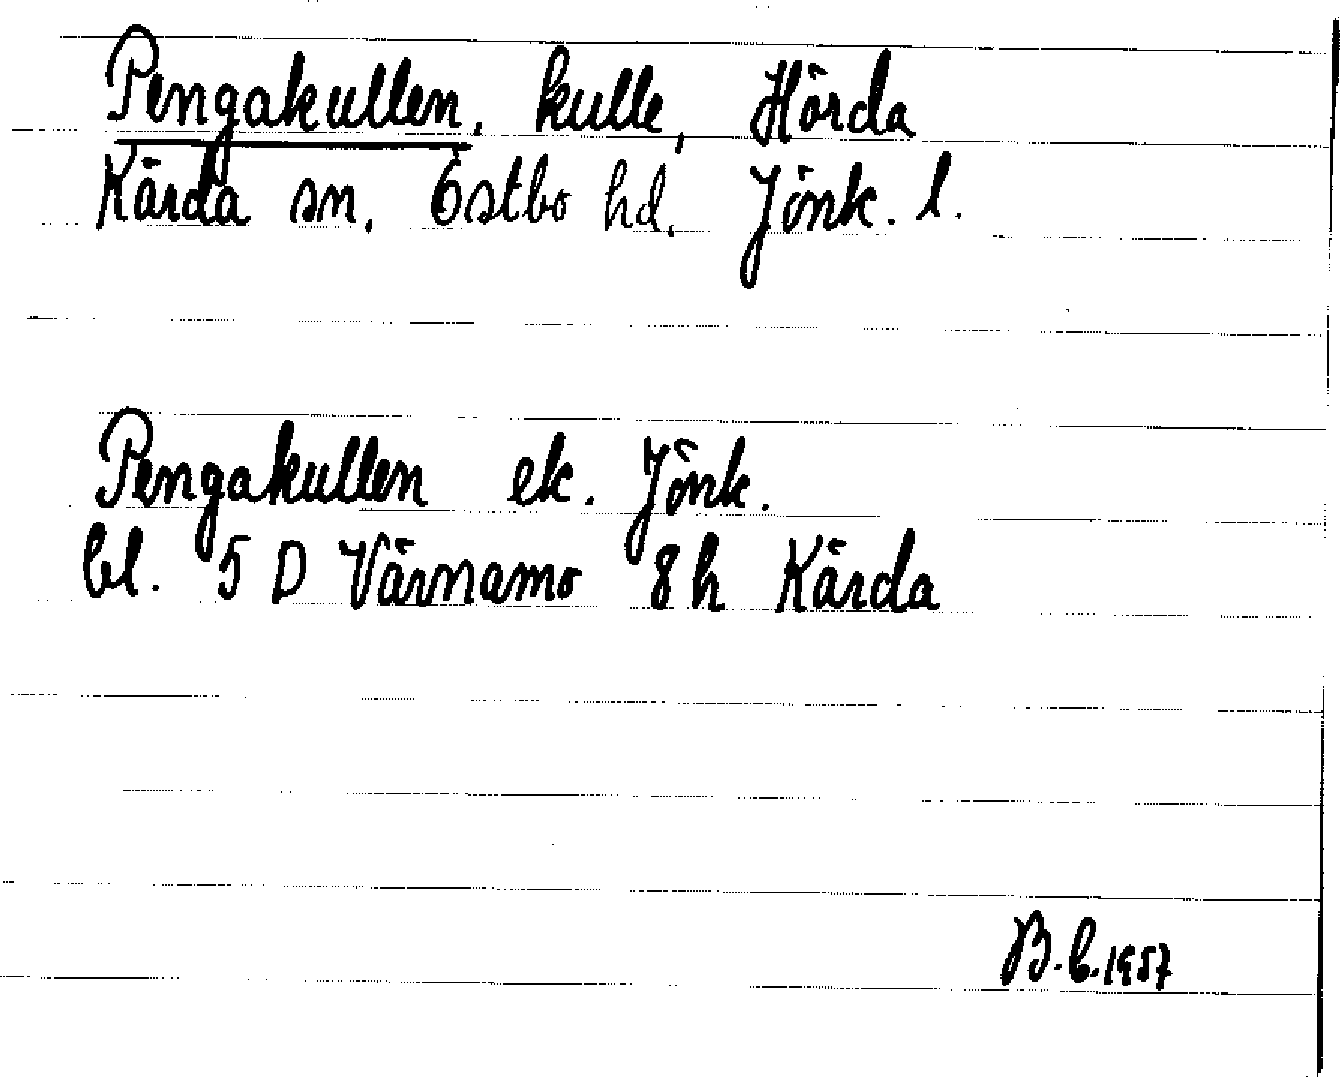 Pengakullen, kulle, Hörda
Kärda sn. Östbo hd. Jönk. l.
Pengakullen ek. Jönk.
bl. 5 D Värnamo 8 h Kärda
B. E. 1957